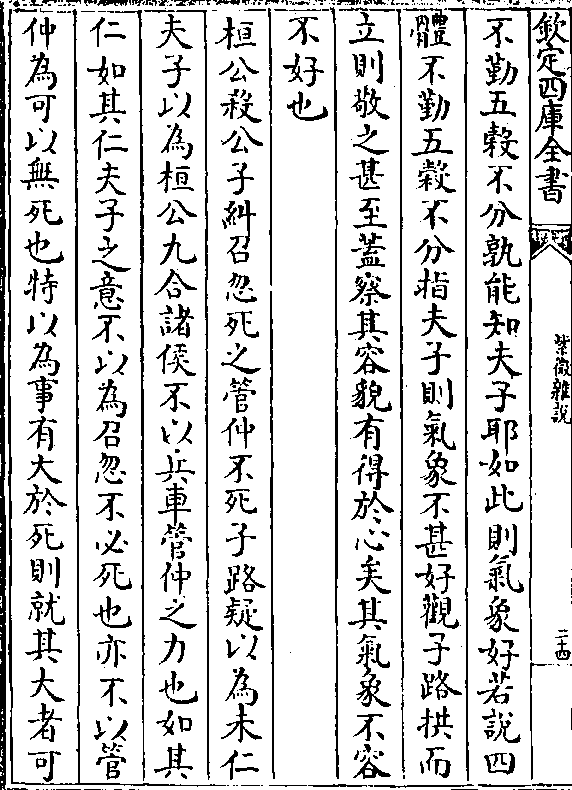 欽定四庫全書
紫微雜說
二十四
不勤五穀不分孰能知夫子耶如此則氣象好若說四
體不勤五穀不分指夫子則氣象不甚好觀子路拱而
立則敬之甚至蓋察其容貌有得於心矣其氣象不容
不好也
桓公殺公子糾召忽死之管仲不死子路疑以為未仁
夫子以為桓公九合諸侯不以兵車管仲之力也如其
仁如其仁夫子之意不以為召忽不必死也亦不以管
仲為可以無死也特以為事有大於死則就其大者可